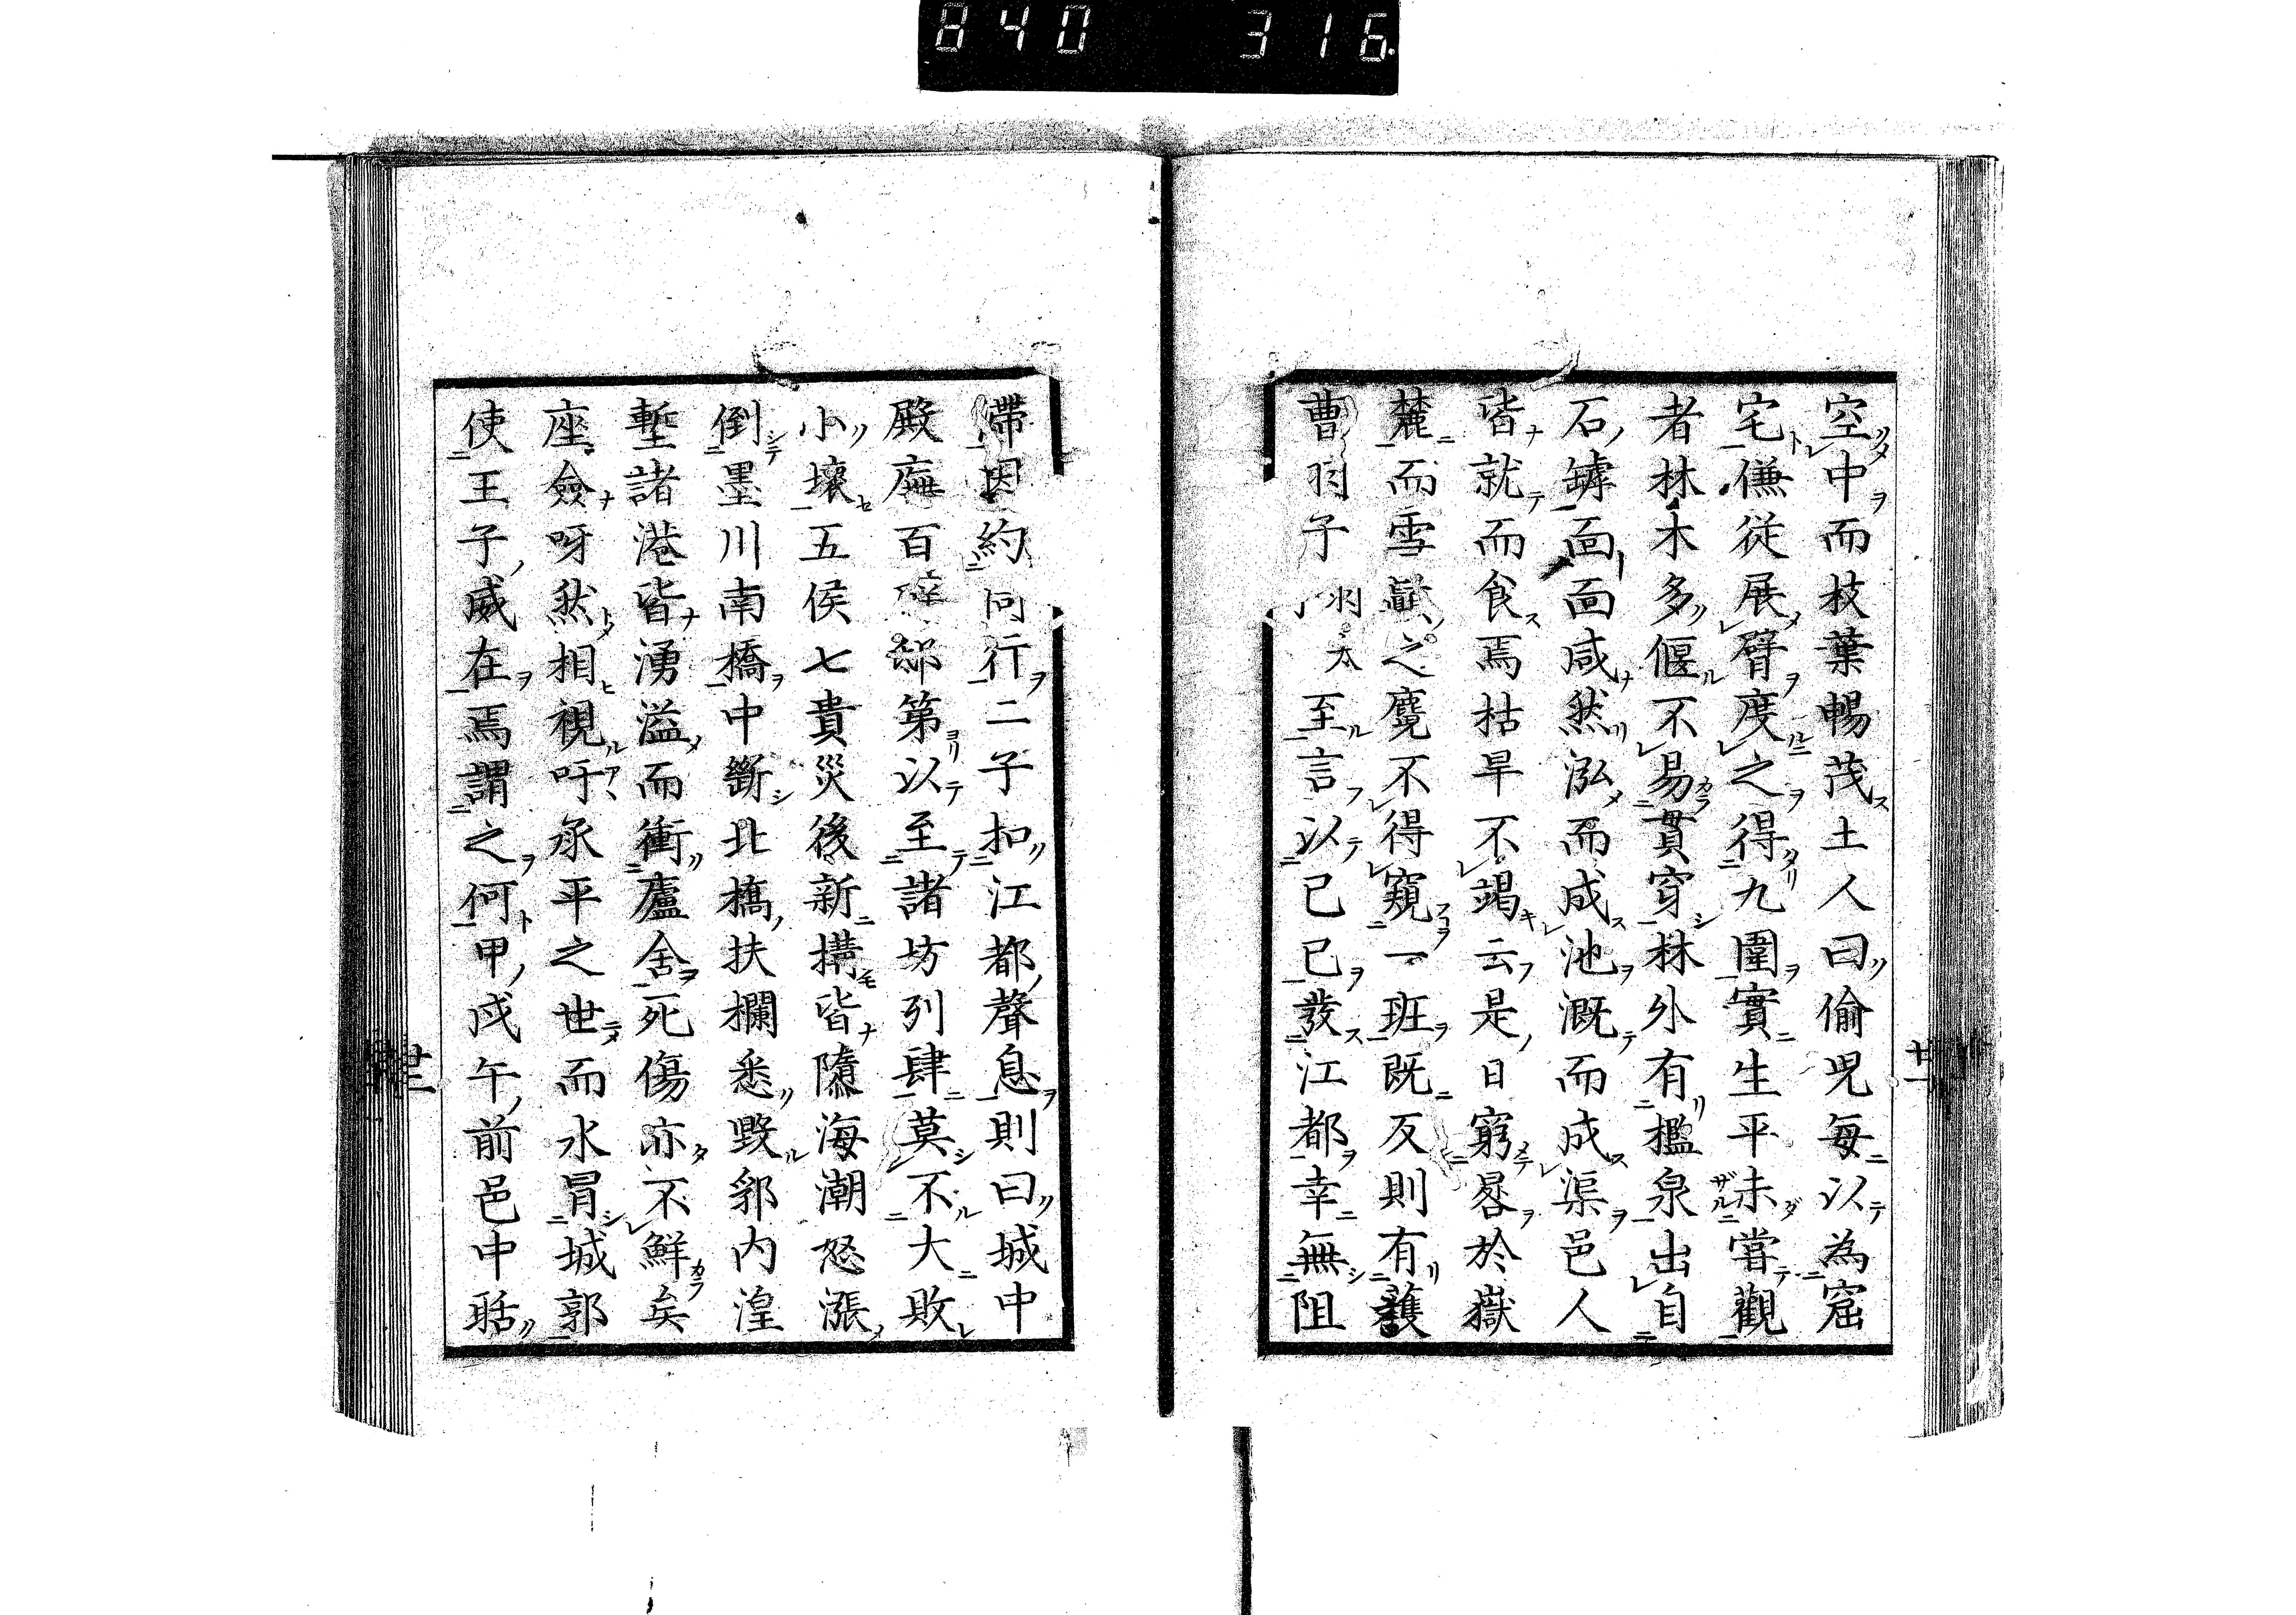 840 316
空中而枝葉暢茂土人曰偷兒每以為窟
宅傔從展臂度之得九圍實生平未嘗觀
者林木多偃不易貫穿林外有檻泉出自
石罅面面咸然泓而成池溉而成渠邑人
皆就而食焉枯旱不竭云是日窮晷於嶽
麓而雪巘之麑不得窺一班既反則有
曹羽子羽太至言以己巳發江都幸無阻
滯因約同行二子扣江都聲息則曰城中
殿廡百邸第以至諸坊列肆莫不大敗
小壞五侯七貴災後新搆皆隳海潮怒漲
倒墨川南橋中斷北橋扶欄悉毀郛內湟
塹諸港皆湧溢而衝廬舍死傷亦不鮮矣
座僉呀然相視吁承平之世而水冒城郭
使王子威在焉謂之何甲戌午前邑中聒